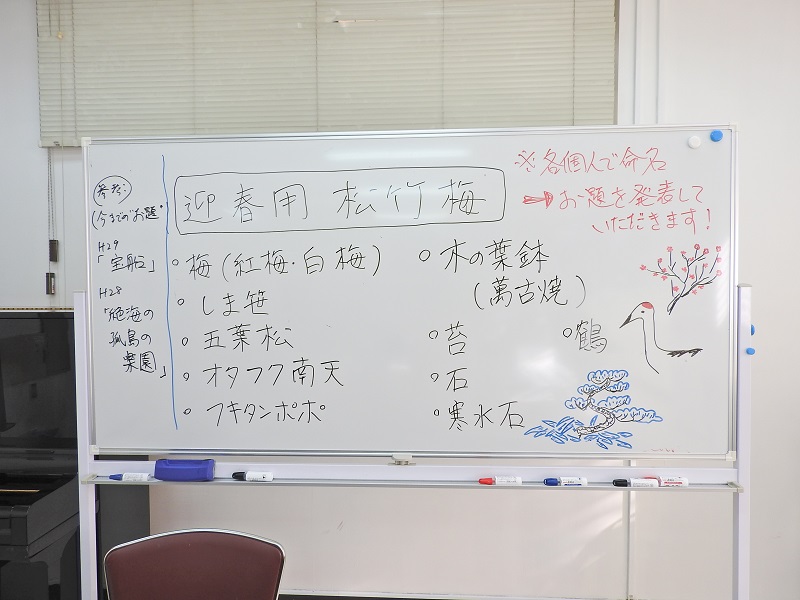 参考:
(今までのお題
H29
「宝船」
H28
「絶海の
孤島の
楽園」
迎春用 松竹梅
・梅(紅梅・白梅)
・しま笹
・五葉松
・オタフク南天
・フキタンポポ
・木の葉鉢
(萬古焼)
・苔
・石
・寒水石
・鶴
※各個人で命名
➡お題を発表して
いただきます!